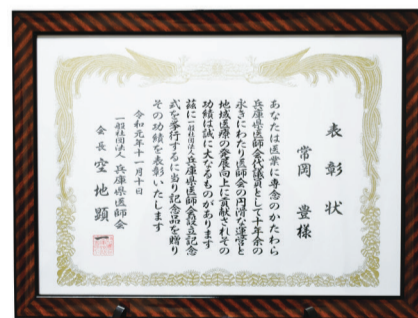 表彰状
常岡 豊様
あなたは医業に専念のかたわら
兵庫県医師会代議員として十年余の
永きにわたり医師会の円滑な運営と
地域医療の発展向上に貢献されその
功績は誠に大なるものがあります
茲に一般社団法人兵庫県医師会設立記念
式を挙行するに当り記念品を贈り
その功績を表彰いたします
令和元年十一月十日
一般社団法人 兵庫県医師会
会長 空地顕一